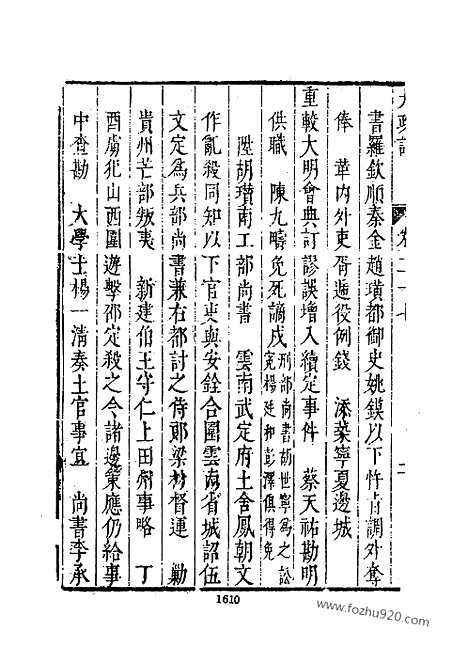 大政記 卷二十七 二
書羅欽順秦金趙璜都御史姚鏌以下忤旨調外奪
俸 革内外吏胥遁役例錢 添築寧夏邊城
重較大明會典訂謬誤增入續定事件 蔡天祐勘明
供職 陳九疇免死謫戍刑部尚書胡世寧爲之訟
冤楊廷和彭澤俱得免
陞胡瓚南工部尚書 雲南武定府土舍鳳朝文
作亂殺同知以下官吏與安銓合圍雲南省城詔伍
文定爲兵部尚書兼右都討之侍郎梁材督運 勦
貴州芒部叛夷 新建伯王守仁上田州事略 丁
酉虜犯山西圍遊擊邵定殺之令諸邊策應仍給事
中查勘 大學士楊一清奏土官事宜 尚書李承
1610
www.fozhu920.com